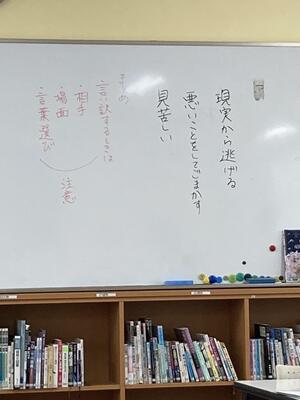 現実から逃げる
悪いことをしてごまかす
見苦しい
まとめ
言い訳するときは
・相手
・場面
・言葉選び
注意